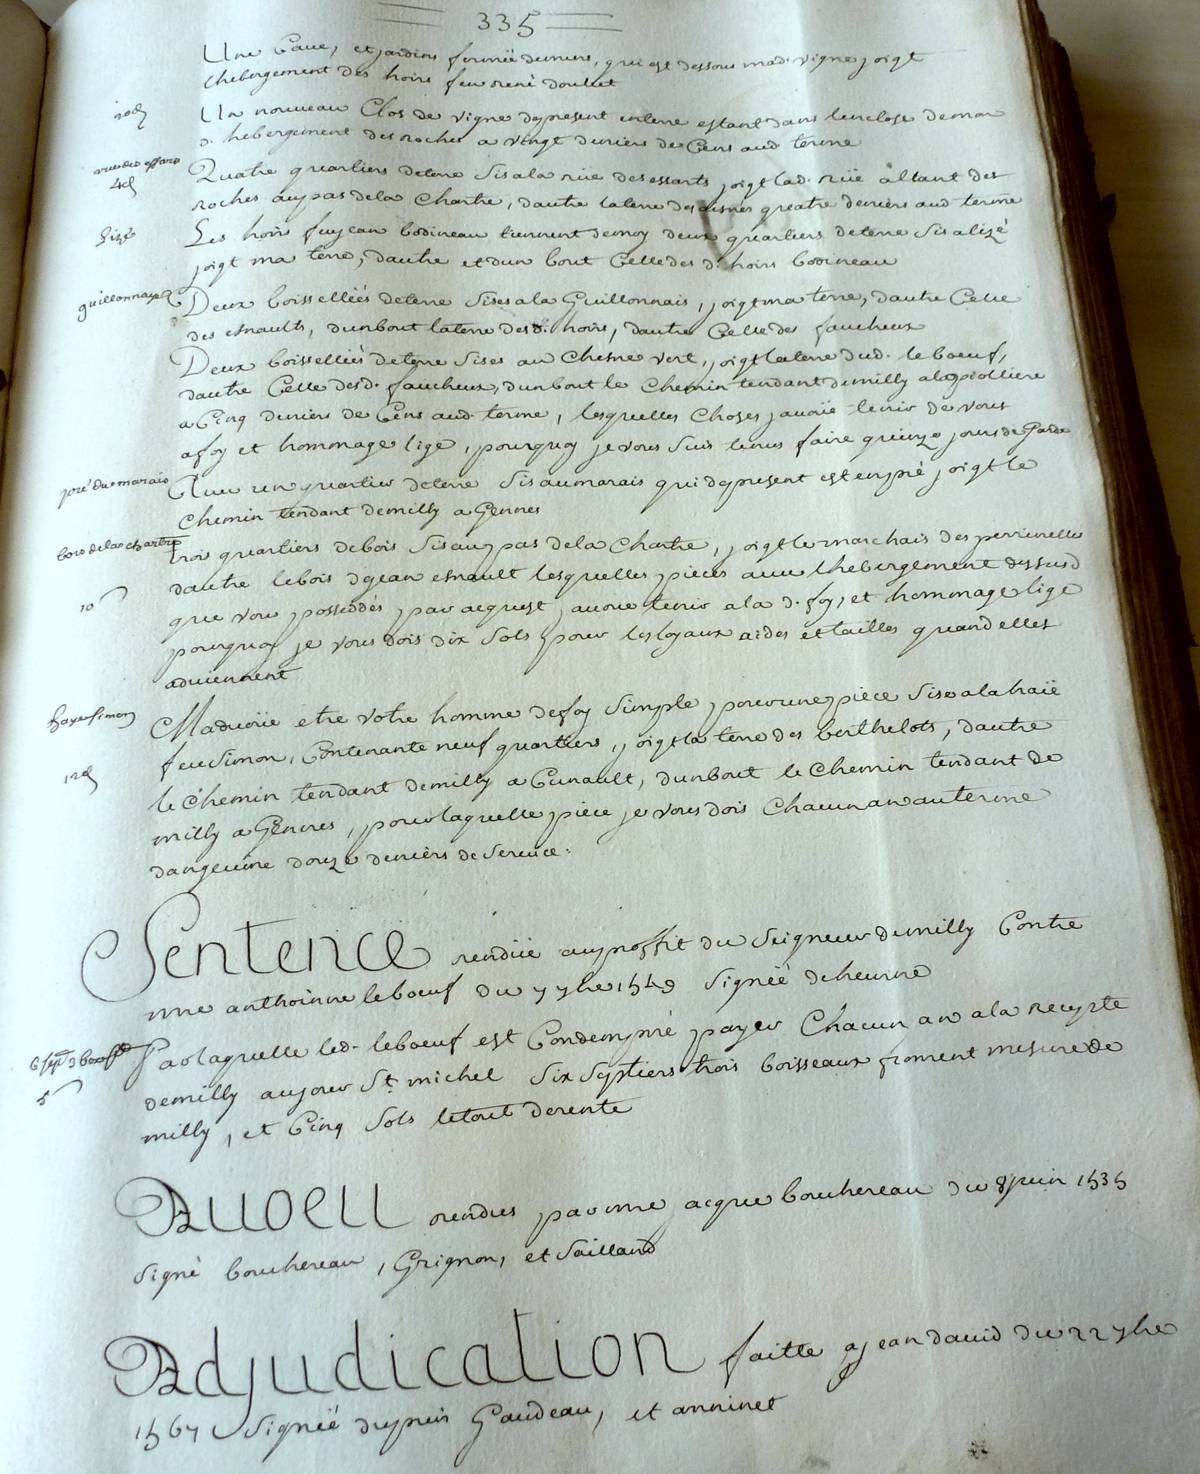 335
Une Caue, et jardins fermée de murs, qui est dessous mad. vigne joigt
lhebergement des hoirs feu rené doublet
20d
Un nouveau Clos de vigne dapresent enterre estant dans lenclose de mon
d. hebergement des roches a vingt deniers de Cens aud. terme
rue des essars
4d
Quatre quartiers de terre Sis a la rüe des essarts joigt lad. rüe allant des
roches au pas de la Chartre, dautre la terre des aisnés quatre deniers aud. terme
Lizé
Les hoirs feu jean bodineau tiennent de moy deux quartiers de terre Sis a lizé
joigt ma terre, dautre et dun bout Celle des d. hoirs bodineau
guillonnaye
Deux boisselleés de terre Sises a la Guillonnais, joigt ma terre, dautre Celle
des esnaults, dun bout la terre des d. hoirs, dautre Celle des faucheux
Deux boisselleés de terre Sises au Chesne vert, joigt la terre dud. leboeuf,
dautre Celle desd. faucheux, dun bout le Chemin tendant de milly a la piolliere
a Cinq deniers de Cens aud. terme, lesquelles Choses j'auoüe tenir de vous
a foy et hommage lige, pourquoy je vous Suis tenus faire quinze jours de Garde
pré du marais
Auec un quartier de terre Sis au marais qui dapresent est en pré joigt le
Chemin tendant de milly a Gennes
bois de la chartre
Trois quartiers de bois Sis au pas de la Chartre, joigt le marchais des perrinelles
dautre le bois de jean esnault lesquelles pieces auec lhebergement dessusd
10
que vous possedés par acquest j'auoue tenir a la d. foy, et hommage lige
pourquoy je vous dois dix Sols pour les loyaux aides et tailles quand elles
aduiennent
haye Simon
Maduoüe etre votre homme de foy Simple pour une piece Sise a la haïe
feu Simon, Contenante neuf quartiers, joigt la terre des berthelots, dautre
12d
le Chemin tendant de milly a Cunault, dun bout le Chemin tendant de
milly a Gennes, pour laquelle piece je vous dois Chacun an au terme
dangeuine douze deniers de Seruice.
Sentence rendüe au proffit du Seigneur de milly Contre
me anthoinne leboeuf du 7 7bre 1549 Signéé deheurne
6 sept 3 boiss fd
Par laquelle led. leboeuf est Condempné payer Chacun an a la recepte
5
de milly au jour St. michel Six Septiers trois boisseaux froment mesure de
milly, et Cinq Sols le tout de rente
Aueu rendus par me jacque bouchereau du 8 juin 1535
Signé bouchereau, Grignon, et Sailland
Adjudication faitte a jean dauid du 22 7bre
1567 Signéé dupuis Gaudeau, et anninet